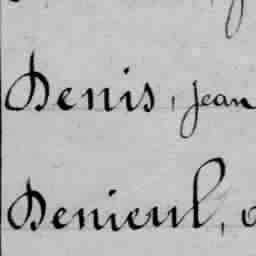 Denis, Jean
Denieul,